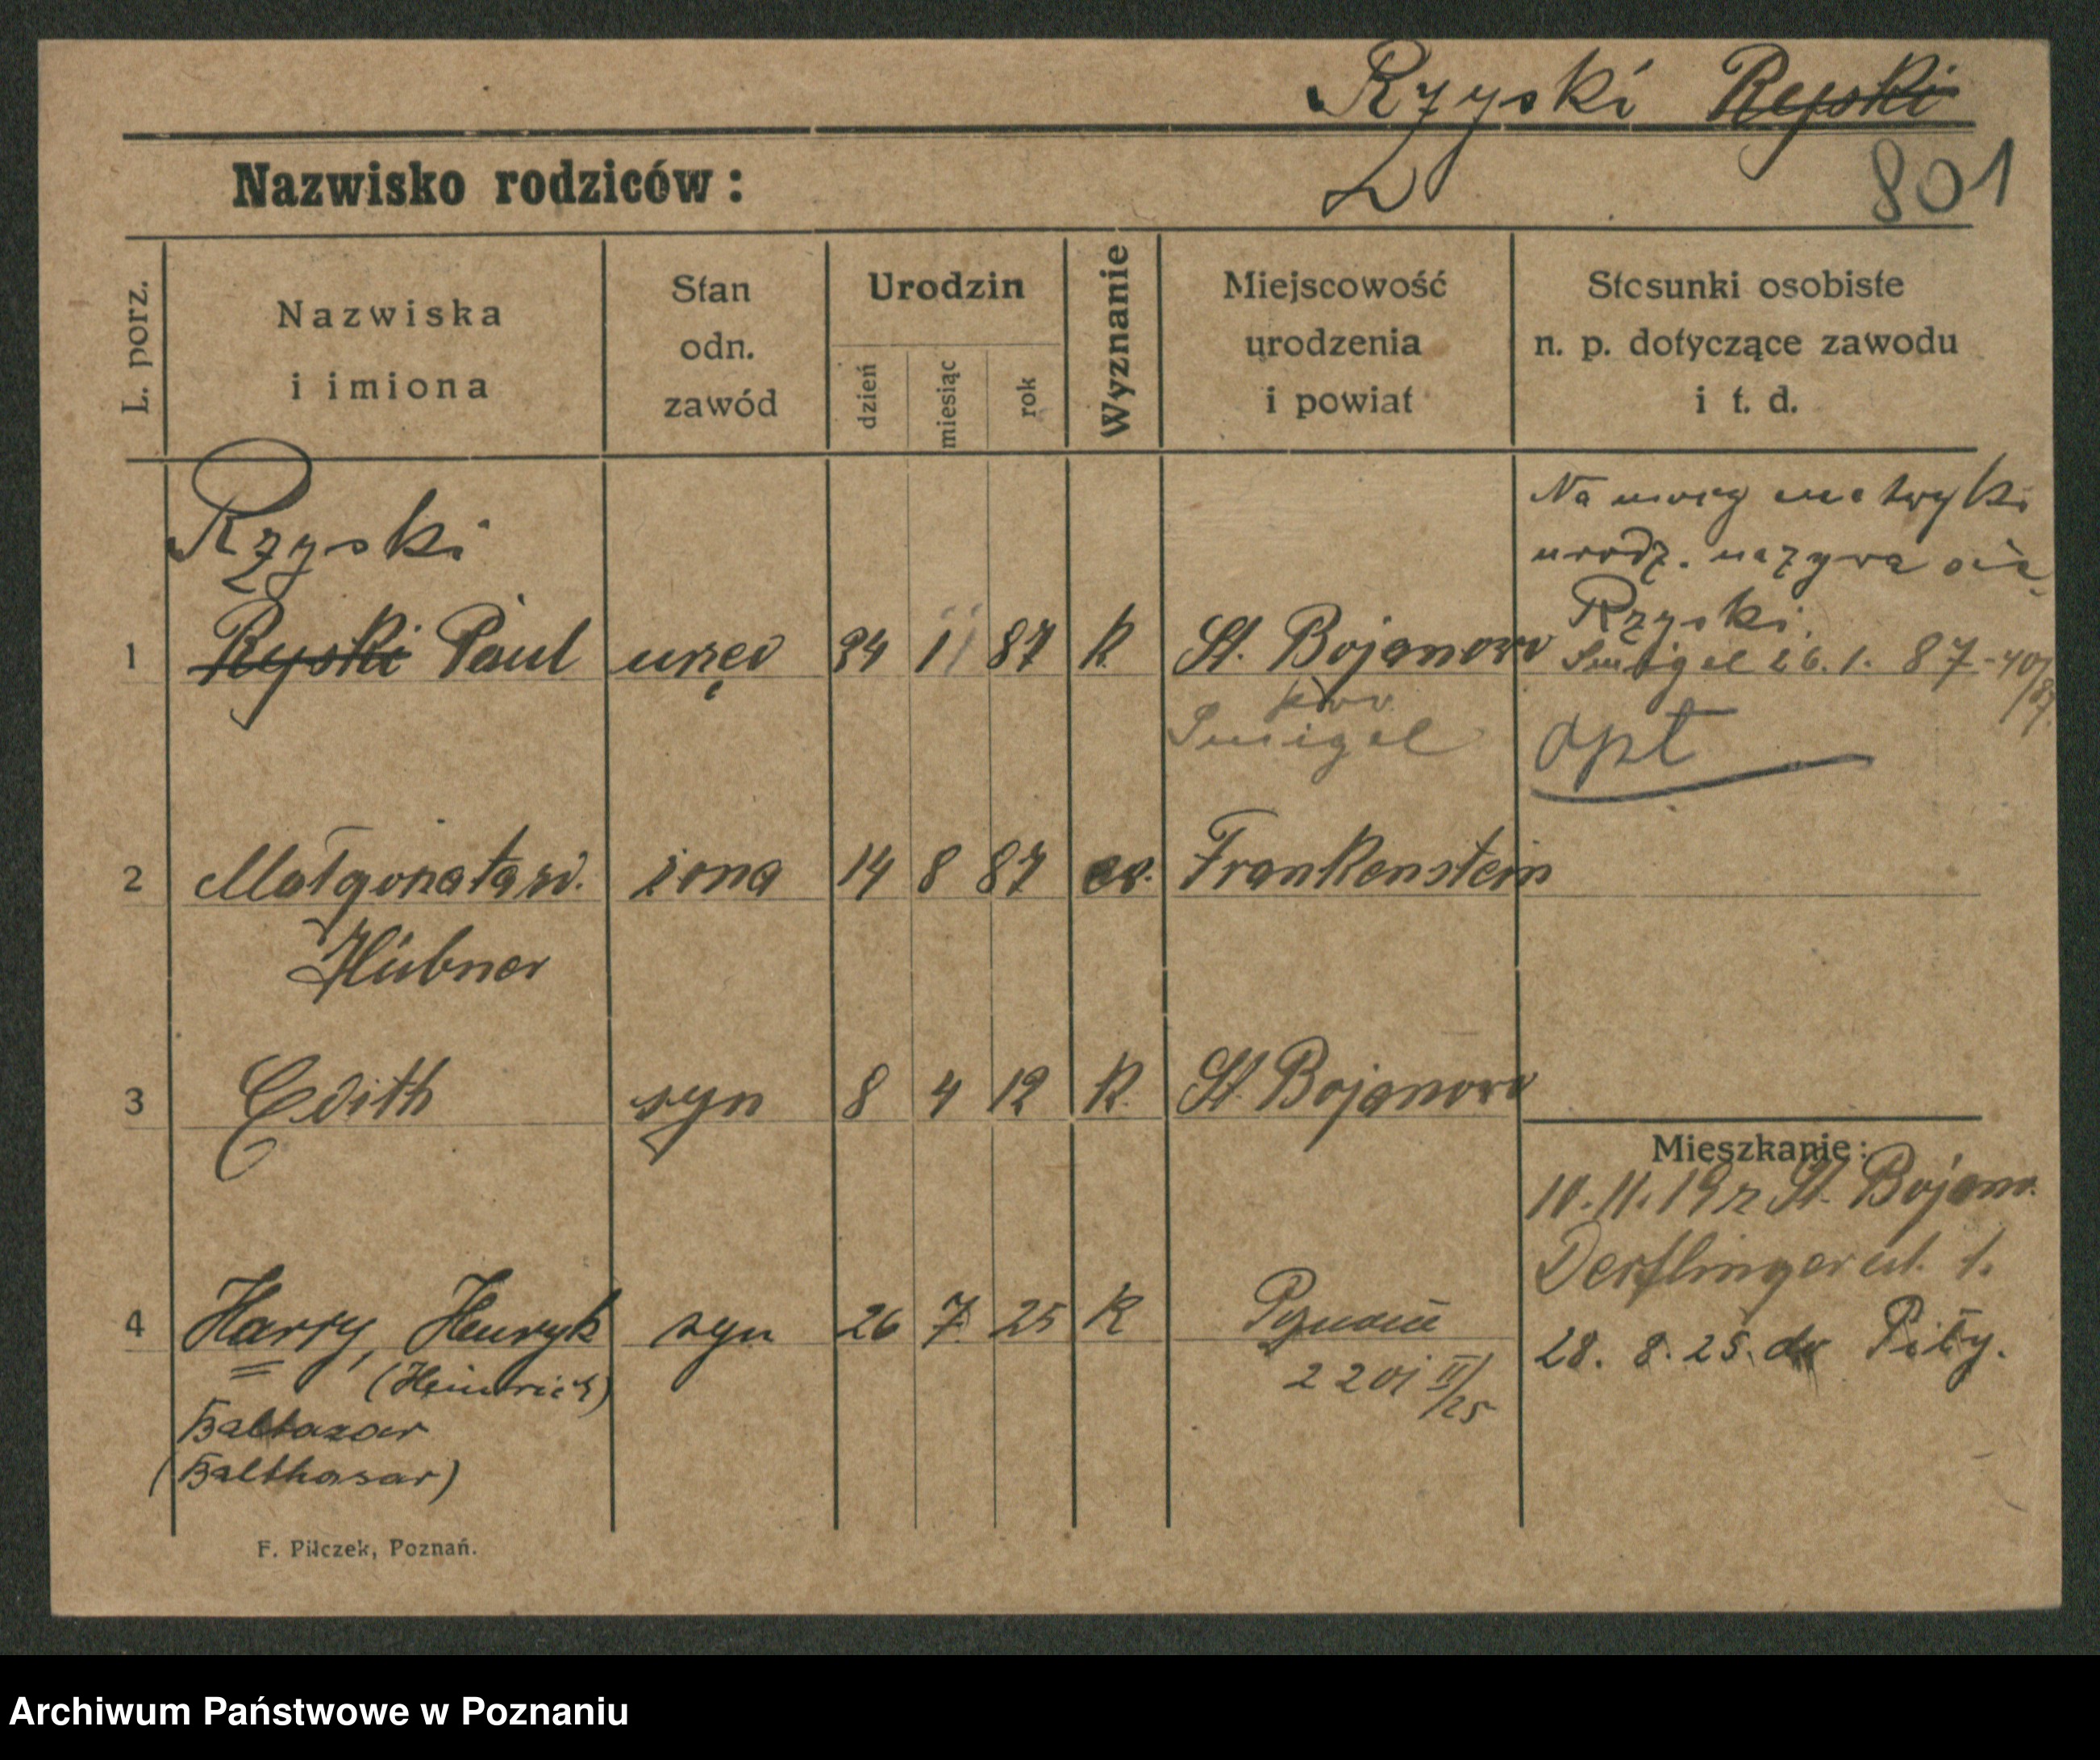 Rzyski Ryski
801
Nazwisko rodziców:
L. porz.
Nazwiska
i imiona
Stan
odn.
zawód
Urodzin
dzień
miesiąc
rok
Wyznanie
Miejscowość
urodzenia
i powiat
Stosunki osobiste
n. p. dotyczące zawodu
i t. d.
Rzyski
1 Ryski Paul urzęd 24 1 87 k. St. Bojanowo
pow
Smigel
Na mocy metryki
urodz. nazywa się
Rzyski.
Smigel 26. 1. 87 - 40/87.
opt
2 Małgorzata 14 8 87 ev. Frankenstein
żona
Hübner
3 Edith syn 8 4 12 k. St. Bojanowo
Mieszkanie:
10. 11. 19 z St. Bojanw.
Derflinger ul. 1.
4 Harry, Henryk syn 26 7 25 k Poznań
28. 8. 25. do Piły.
(Heinrich)
2201 II/25
Baltazar
(Balthasar)
F. Pilczek, Poznań.
Archiwum Państwowe w Poznaniu